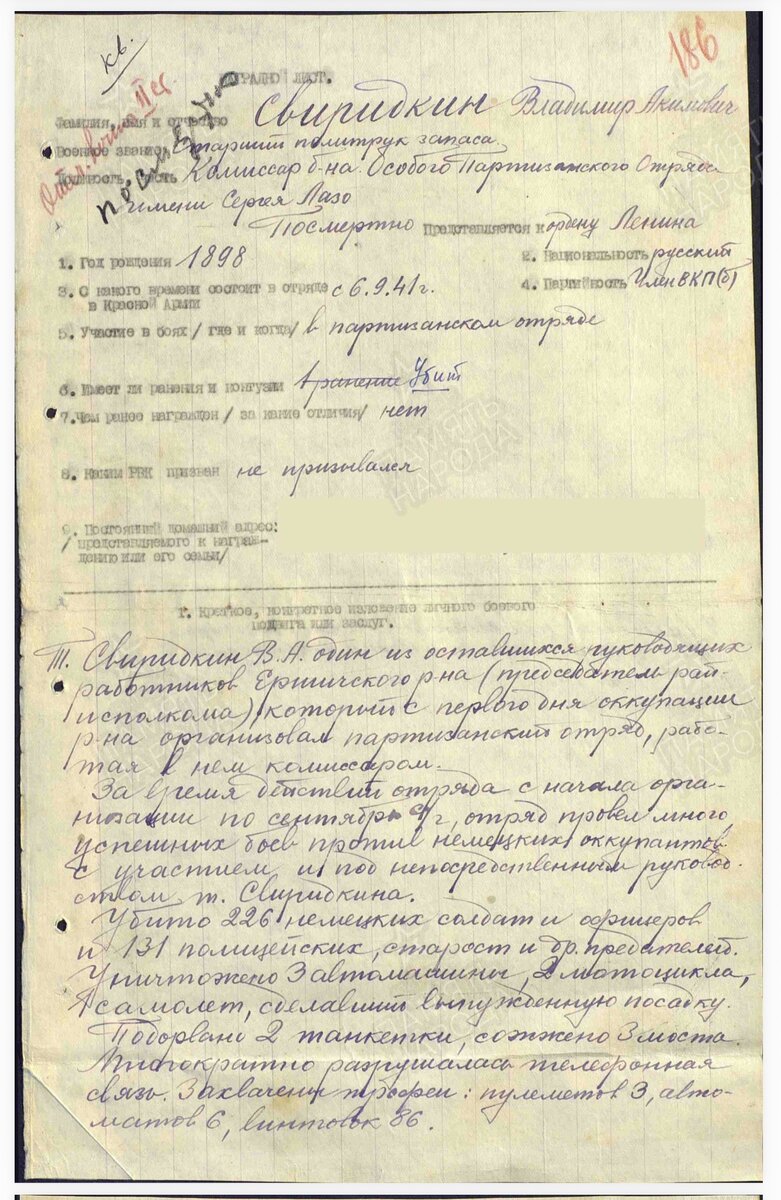 кв.
186
НАГРАДНОЙ ЛИСТ.
Фамилия, имя и отчество Свиридкин Владимир Акимович
Военное звание Старший политрук запаса.
Должность, часть Комиссар б-на Особого Партизанского Отряда
имени Сергея Лазо
Посмертно Представляется к ордену Ленина
1. Год рождения 1898
2. Национальность русский
3. С какого времени состоит в отряде с 6.9.41 г.
в Красной Армии
4. Партийность Член ВКП(б)
5. Участие в боях / где и когда/ в партизанском отряде
6. Имеет ли ранения и контузии 1 ранение Убит
7. Чем ранее награжден / за какие отличия/ нет
8. Каким РВК призван не призывался
9. Постоянный домашний адрес:
/ представляемого к награж-
дению или его семьи/
1. Краткое, конкретное изложение личного боевого
подвига или заслуг.
Т. Свиридкин В.А. один из оставшихся руководящих
работников Ершичского р-на (председатель рай-
исполкома), который с первого дня оккупации
р-на организовал партизанский отряд, рабо-
тая в нем комиссаром.
За время действий отряда с начала орга-
низации по сентябрь г, отряд провел много
успешных боев против немецких оккупантов
с участием и под непосредственным руковод-
ством т. Свиридкина.
Убито 226 немецких солдат и офицеров
и 131 полицейских, старост и др. предателей.
Уничтожено 3 автомашины, 2 мотоцикла,
1 самолет, сделавший вынужденную посадку.
Подорвано 2 танкетки, сожжено 3 моста.
Многократно разрушалась телефонная
связь. Захвачены трофеи: пулеметов 3, авто-
матов 6, винтовок 86.
ПАМЯТЬ
НАРОДА